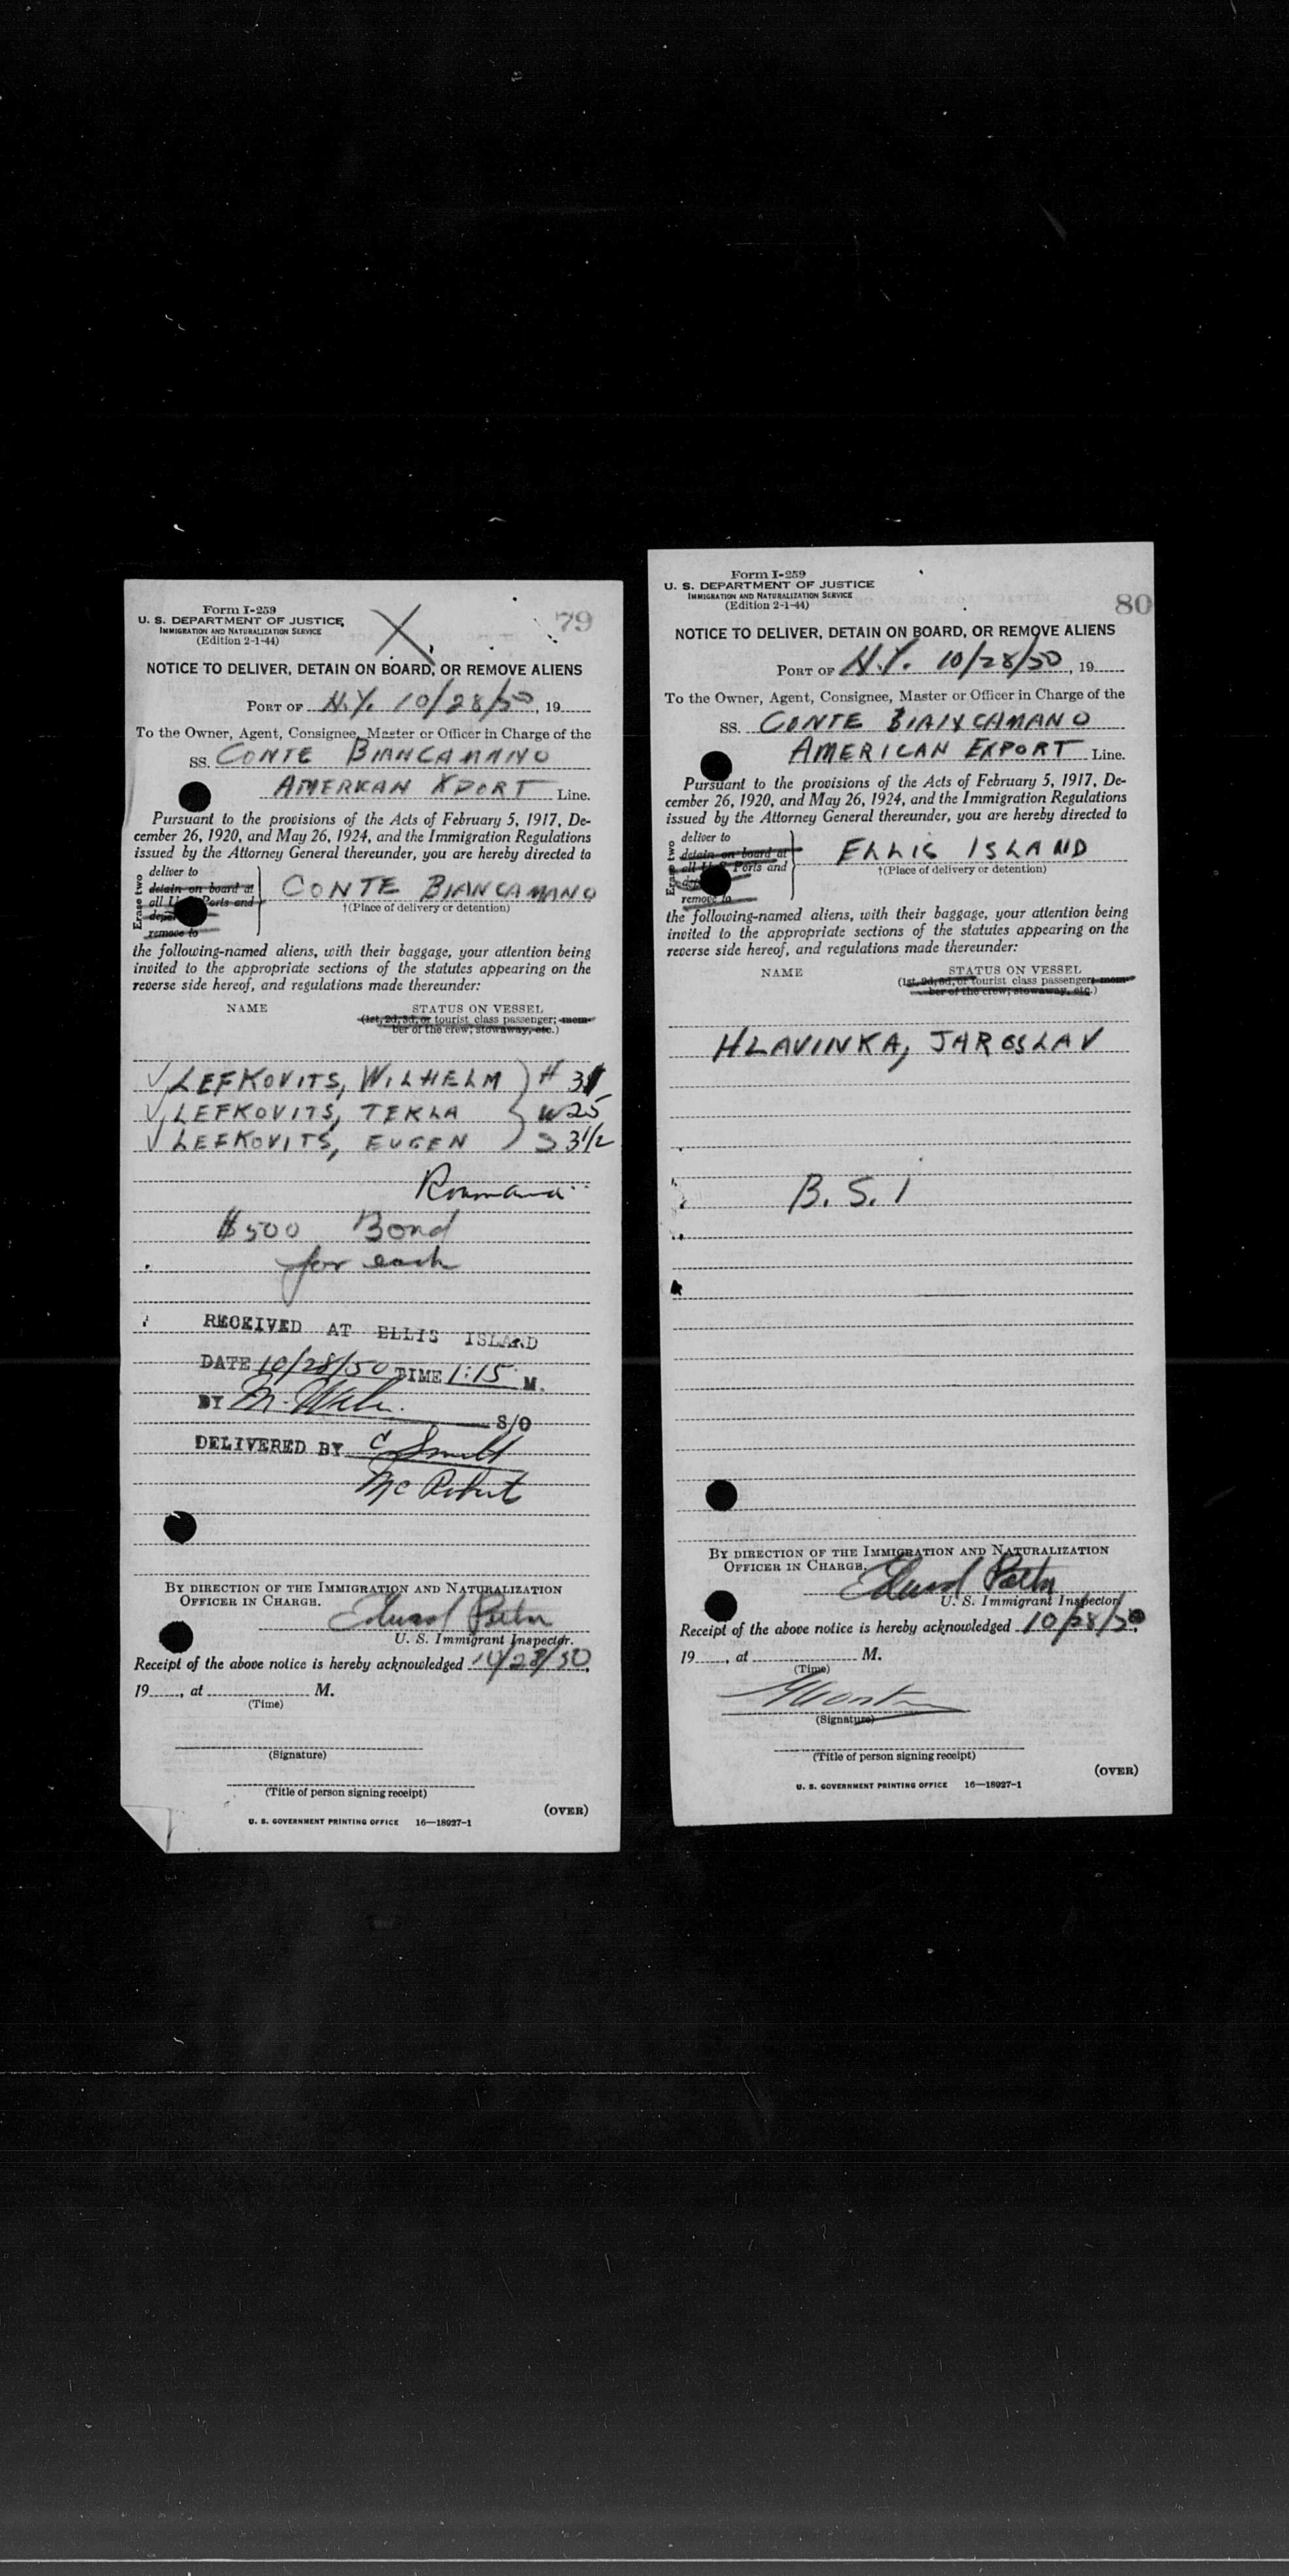 Form I-259
U. S. DEPARTMENT OF JUSTICE
IMMIGRATION AND NATURALIZATION SERVICE
(Edition 2-1-44)
X
79
NOTICE TO DELIVER, DETAIN ON BOARD, OR REMOVE ALIENS
PORT OF N.Y. 10/28/50, 19
To the Owner, Agent, Consignee, Master or Officer in Charge of the
SS. CONTE BIANCAMANO
AMERKAN XPORT Line.
Pursuant to the provisions of the Acts of February 5, 1917, De-
cember 26, 1920, and May 26, 1924, and the Immigration Regulations
issued by the Attorney General thereunder, you are hereby directed to
Erase two
deliver to
detain on board at
all U. S. Ports and
remove to
CONTE BIANCAMANO
†(Place of delivery or detention)
the following-named aliens, with their baggage, your attention being
invited to the appropriate sections of the statutes appearing on the
reverse side hereof, and regulations made thereunder:
NAME STATUS ON VESSEL
(1st, 2d, 3d, or tourist class passenger; mem-
ber of the crew; stowaway, etc.)
✓ LEFKOVITS, WILHELM H 31
✓ LEFKOVITS, TEKLA W 25
✓ LEFKOVITS, EUGEN S 3 1/2
$500 Bond
for each
RECEIVED AT ELLIS ISLAND
DATE 10/28/50 TIME 1:15 M.
BY M. S/O
DELIVERED BY C
BY DIRECTION OF THE IMMIGRATION AND NATURALIZATION
OFFICER IN CHARGE.
Edward
U. S. Immigrant Inspector.
Receipt of the above notice is hereby acknowledged 10/28/50,
19, at M.
(Time)
(Signature)
(Title of person signing receipt)
(OVER)
U. S. GOVERNMENT PRINTING OFFICE 16—18927-1
Form I-259
U. S. DEPARTMENT OF JUSTICE
IMMIGRATION AND NATURALIZATION SERVICE
(Edition 2-1-44)
80
NOTICE TO DELIVER, DETAIN ON BOARD, OR REMOVE ALIENS
PORT OF N.Y. 10/28/50, 19
To the Owner, Agent, Consignee, Master or Officer in Charge of the
SS. CONTE BIANCAMANO
AMERICAN EXPORT Line.
Pursuant to the provisions of the Acts of February 5, 1917, De-
cember 26, 1920, and May 26, 1924, and the Immigration Regulations
issued by the Attorney General thereunder, you are hereby directed to
Erase two
deliver to
detain on board at
all U. S. Ports and
remove to
ELLIS ISLAND
†(Place of delivery or detention)
the following-named aliens, with their baggage, your attention being
invited to the appropriate sections of the statutes appearing on the
reverse side hereof, and regulations made thereunder:
NAME STATUS ON VESSEL
(1st, 2d, 3d, or tourist class passenger; mem-
ber of the crew; stowaway, etc.)
HLAVINKA, JAROSLAV
B. S. I
BY DIRECTION OF THE IMMIGRATION AND NATURALIZATION
OFFICER IN CHARGE.
Edward
U. S. Immigrant Inspector.
Receipt of the above notice is hereby acknowledged 10/28/50,
19, at M.
(Time)
(Signature)
(Title of person signing receipt)
(OVER)
U. S. GOVERNMENT PRINTING OFFICE 16—18927-1